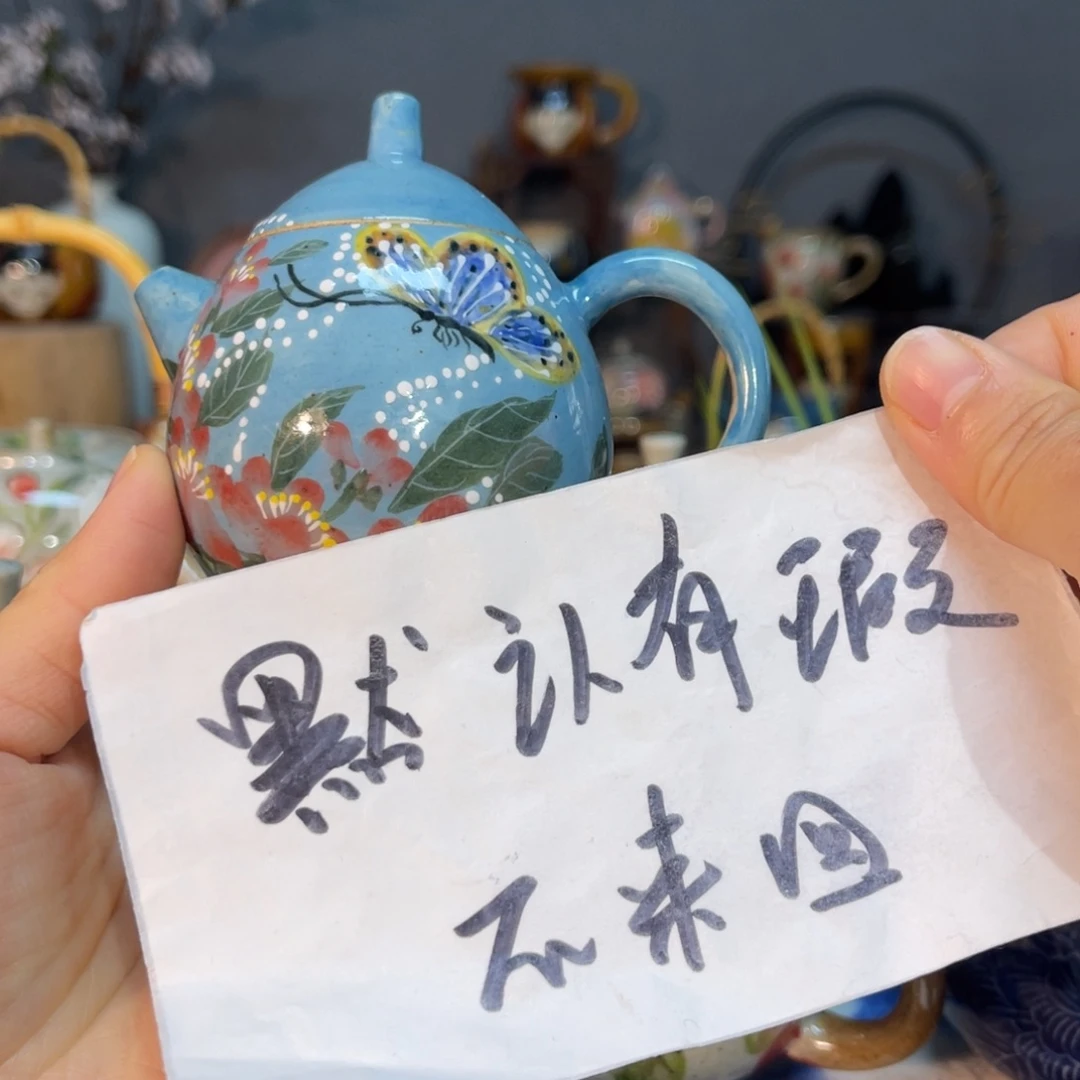 默认有瑕
不来回